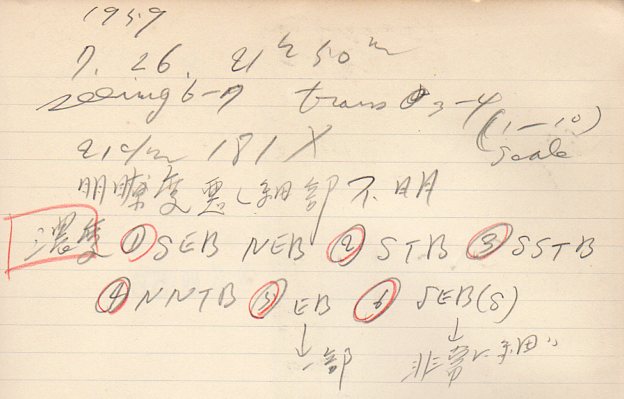 1959
7. 26. 21h 50m
seeing 6-7 trans 3-4 (1-10)
21c/m 181X scale
明瞭度悪し細部不明
濃度 ① SEB NEB ② STB ③ SSTB
④ NNTB ⑤ EB ⑥ SEB(S)
↓ ↓
部 非常に細い